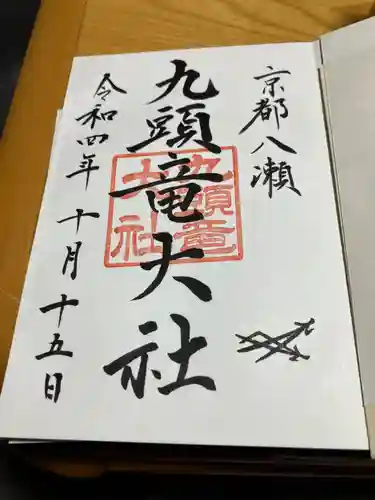 京都八瀬
九頭竜大社
九頭竜
大社
令和四年
十月十五日